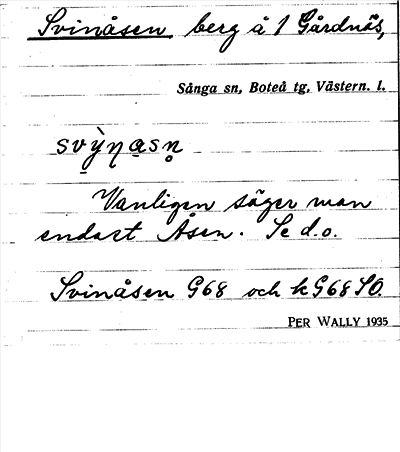 Svinåsen berg å 1 Gårdnäs,
Sånga sn, Boteå tg, Västern. l.
svỳŋa̱sn̥
Vanligen säger man
endast Åsen. Se d.o.
Svinåsen G68 och k G68 SO.
PER WALLY 1935